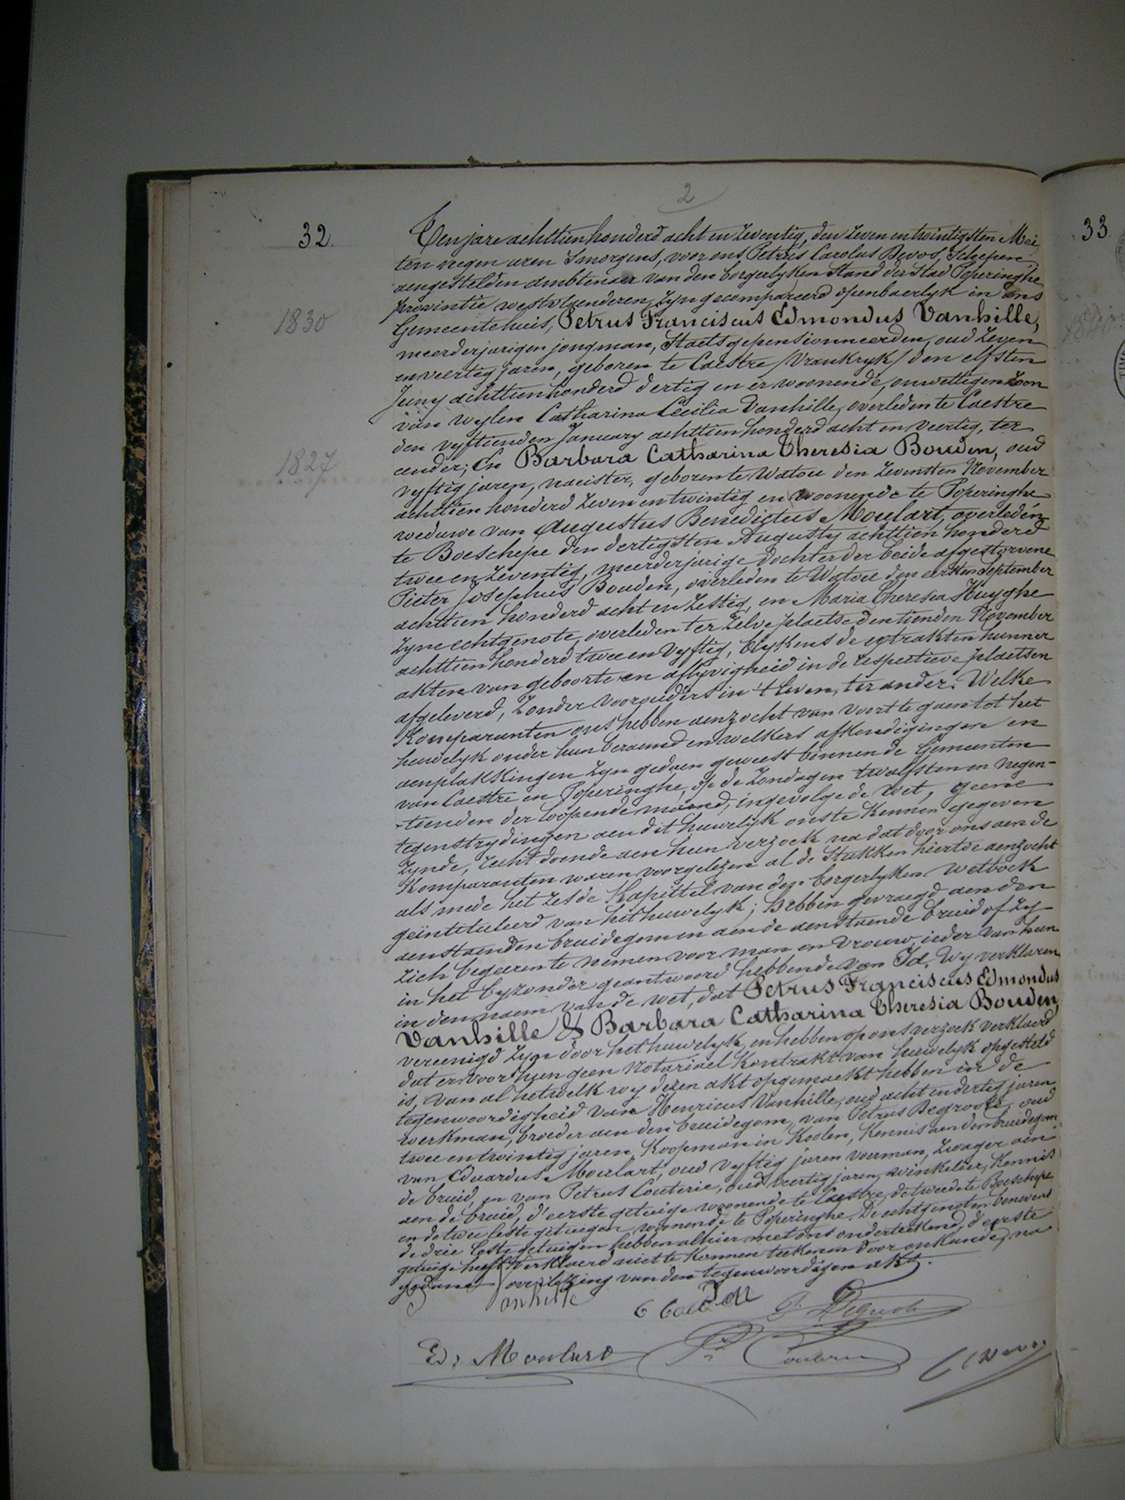 2
32
33
Ten jare achttien honderd acht en zeventig, den zeven en twintigsten Mei
ten negen uren 's morgens, voor ons Petrus Carolus Devos, Schepen
aengestelden ambtenaer van den borgerlyken stand der stad Poperinghe
provintie westvlaenderen, zyn gecompareerd openbaerlyk in ons
1830
Gemeentehuis, Petrus Franciscus Edmondus Vanhille,
meerderjarigen jongman, Staets gepensionneerden, oud zeven
en veertig jaren, geboren te Caestre /Vrankryk/ den elfsten
Juny achttien honderd dertig en er woonende, onwettigen zoon
van wylen Catharina Cecilia Vanhille, overleden te Caestre
den vyftienden January achttien honderd acht en veertig, ter
1827
eender; En Barbara Catharina Theresia Bouden, oud
vyftig jaren, naeister, geboren te Watou den zevensten November
achttien honderd zeven en twintig en woonende te Poperinghe
weduwe van Augustus Benedictus Moulart, overleden
te Boeschepe den dertigsten Augusty achttien honderd
twee en zeventig, meerderjarige dochter der beide afgestorvene
Pieter Josephus Bouden, overleden te Watou den eersten September
achttien honderd acht en zestig, en Maria Theresia Huyghe
zyne echtgenote, overleden ter zelve plaetse den tienden November
achttien honderd twee en vyftig, blykens de extrakten hunner
akten van geboorte en aflyvigheid in de respective plaetsen
afgeleverd, zonder voorouders in 't leven, ter ander. Welke
Komparanten ons hebben aenzocht van voort te gaen tot het
huwelyk onder hun beraemd en welkers afkondigingen en
aenplakkingen zyn gedaen geweest binnen de Gemeenten
van Caestre en Poperinghe, op de zondagen twaelfsten en negen-
tienden der loopende maend, ingevolge de wet, geene
tegenstrydingen aen dit huwelyk ons te kennen gegeven
zynde, recht doende aen hun verzoek na dat door ons aen de
Komparanten waren voorgelezen al de Stukken hiertoe aenzocht
als mede het zesde Kapittel van den borgerlyken wetboek
geïntituleerd van het huwelyk; Hebben gevraegd aen den
aenstaenden bruidegom en aen de aenstaende bruid of zy
zich begeeren te nemen voor man en vrouw, ieder van hun
in het byzonder geantwoord hebbende van Ja, Wy verklaren
in den naem van de wet, dat Petrus Franciscus Edmondus
Vanhille & Barbara Catharina Theresia Bouden,
vereenigd zyn door het huwelyk, en hebben op ons verzoek verklaerd
dat er voor hun geen notarieel kontrakt van huwelyk opgesteld
is, van al hetwelk wy dezen akt opgemaekt hebben in de
tegenwoordigheid van Henricus Vanhille, oud acht en dertig jaren
werkman, broeder aen den bruidegom, van Petrus Degroote, oud
twee en twintig jaren Koopman in Kolen, kennis aen den bruidegom
van Eduardus Moulart, oud vyftig jaren voerman, zwager aen
de bruid, en van Petrus Couterie, oud veertig jaren, winkelier, kennis
aen de bruid, d'eerste getuige woonende te Caestre, de tweede te Boeschepe
en de twee leste getuigen woonende te Poperinghe. De echtgenoten benevens
de drie leste getuigen hebben alhier met ons onderteekend, d'eerste
getuige heeft verklaerd niet te konnen teekenen door onkunde, na
gedane overlezing van den tegenwoordigen akt.
Vanhille
Ed. Moulard